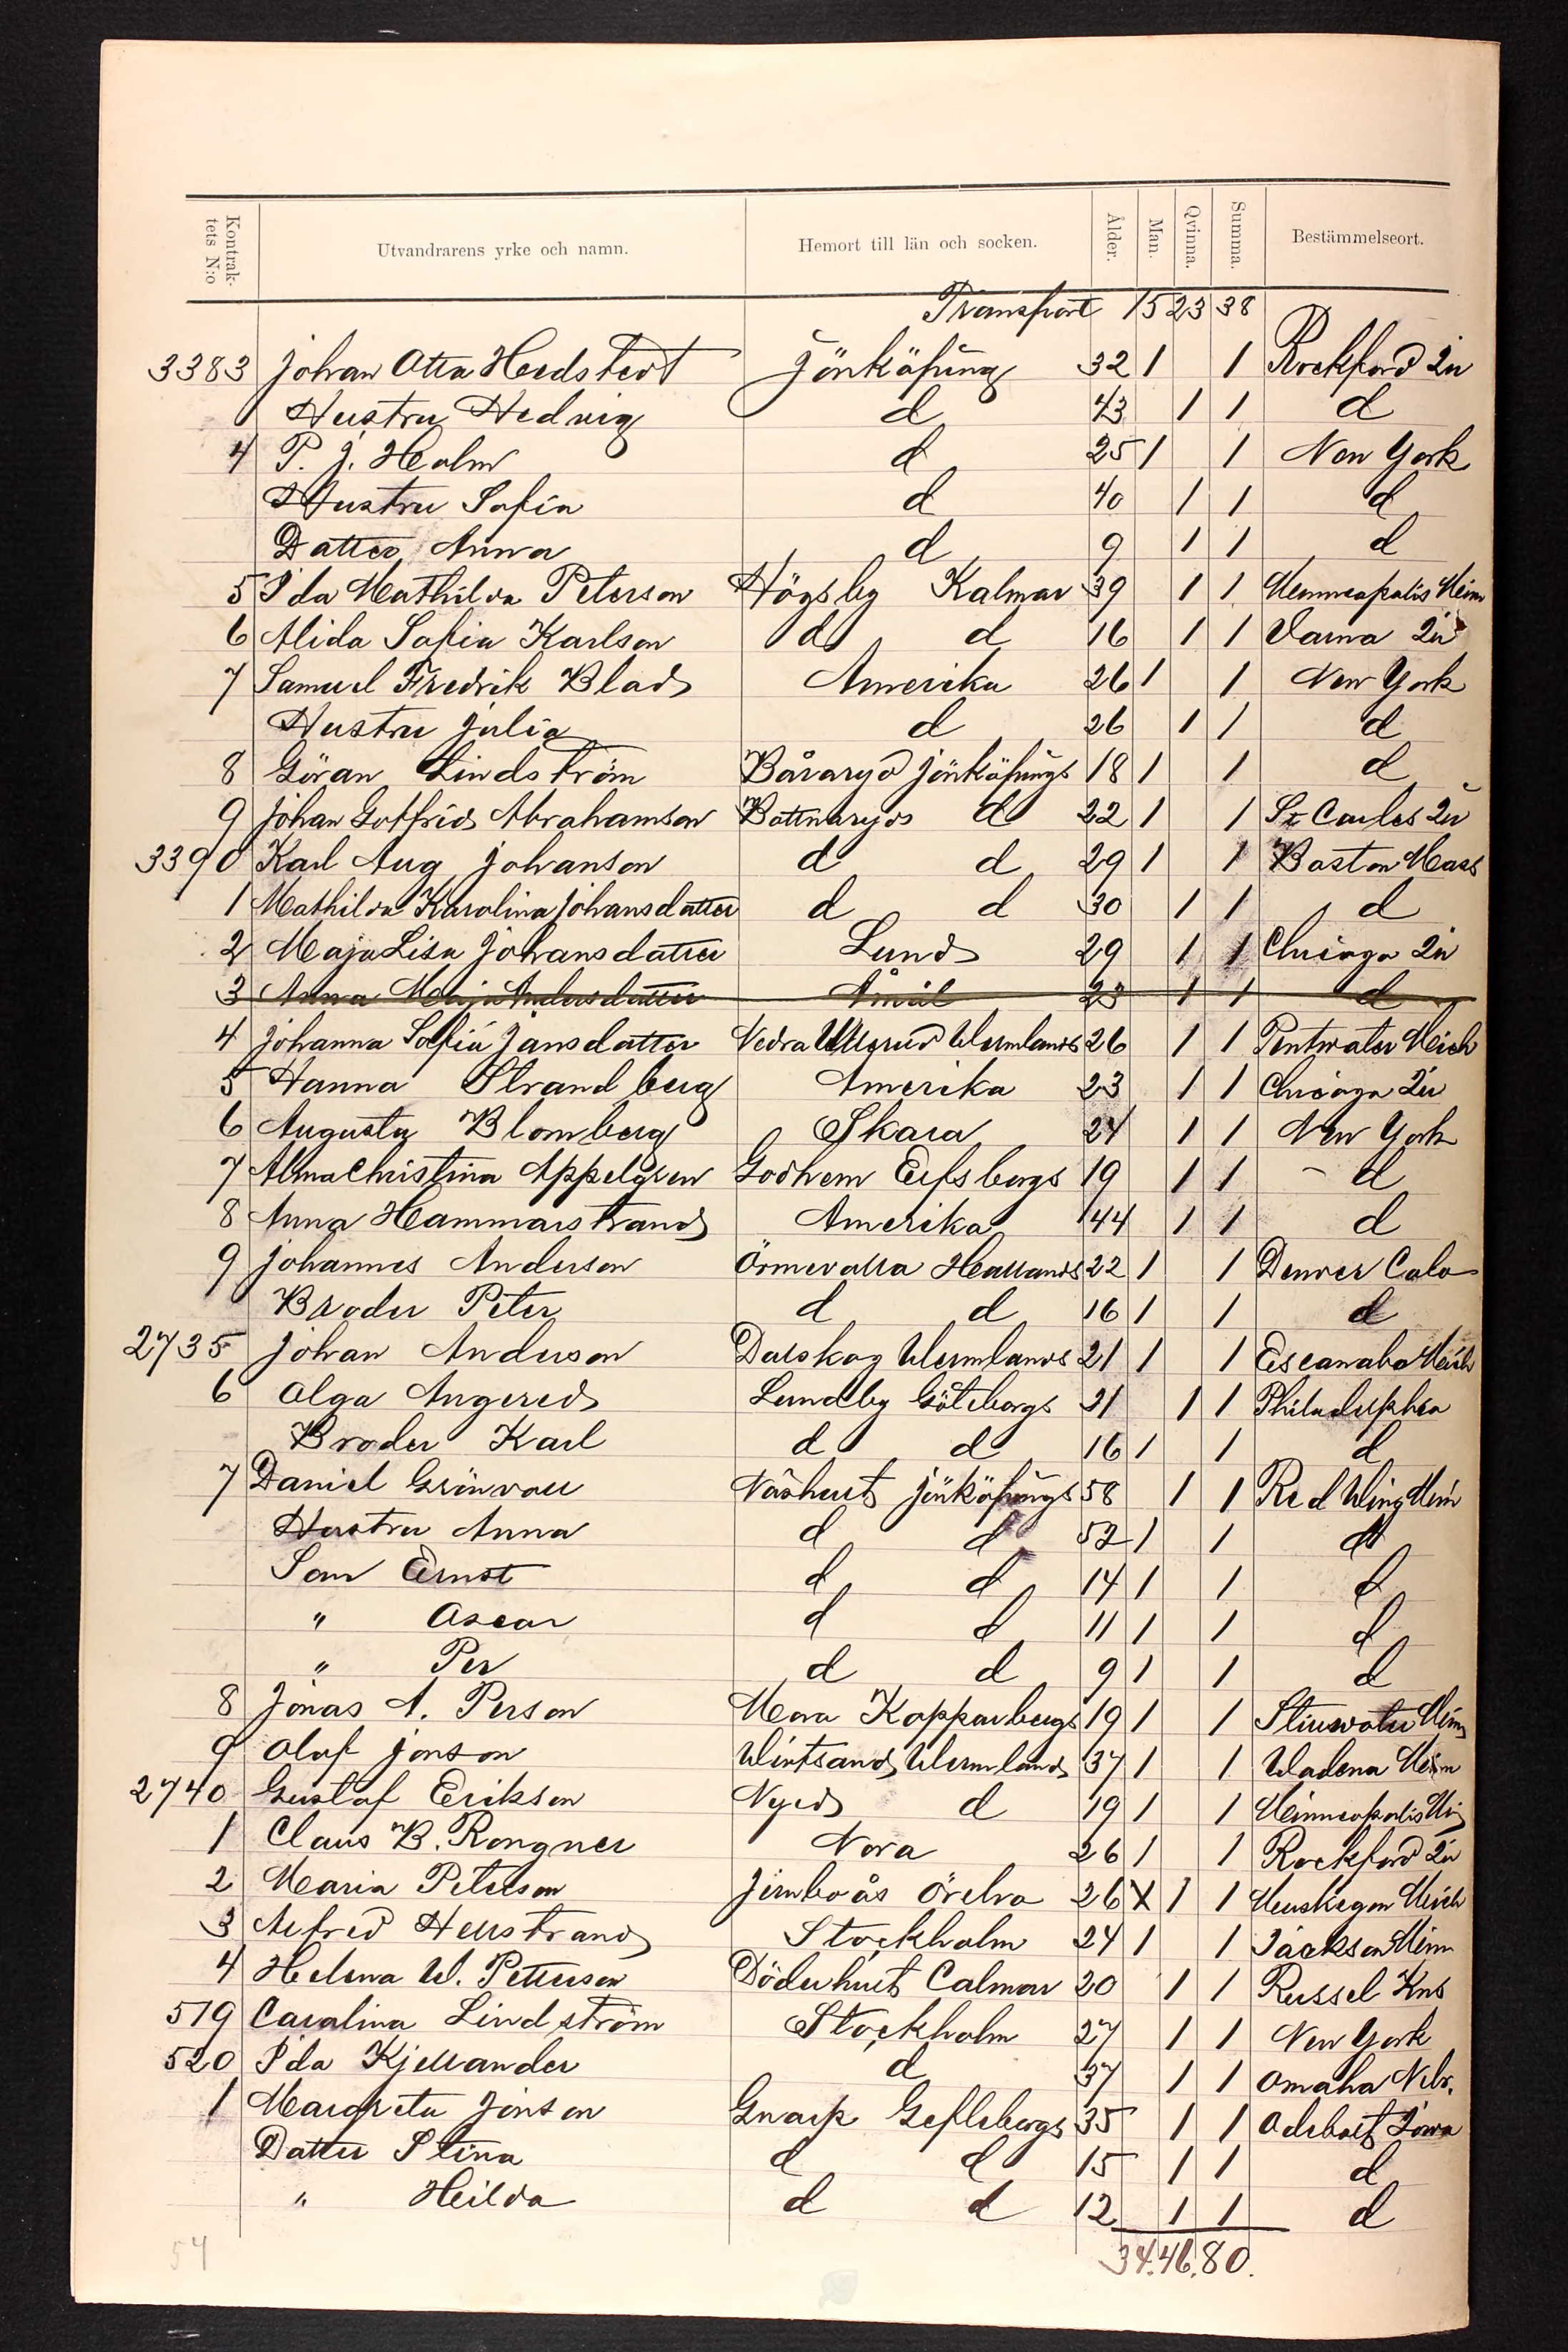 Kontrak-
tets N:o
Utvandrarens yrke och namn.
Hemort till län och socken.
Ålder.
Man.
Qvinna.
Summa.
Bestämmelseort.
Transport 15 23 38
3383 Johan Otto Hedstedt Jönköping 32 1 1 Rockford Ill
Hustru Hedvig d 43 1 1 d
4 P. J. Holm d 25 1 1 New York
Hustru Sofia d 40 1 1 d
Datter Anna d 9 1 1 d
5 Ida Mathilda Peterson Högsby Kalmar 39 1 1 Minneapolis Minn
6 Alida Sofia Karlson d d 16 1 1 Varna Ill
7 Samuel Fredrik Blad Amerika 26 1 1 New York
Hustru Julia d 26 1 1 d
8 Göran Lindström Båraryd Jönköpings 18 1 1 d
9 Johan Gotfrid Abrahamson Bottnaryds d 22 1 1 St Carles Ill
3390 Karl Aug Johanson d d 29 1 1 Boston Mass
1 Mathilda Karolina Johansdatter d d 30 1 1 d
2 Maja Lisa Johansdatter Lund 29 1 1 Chicago Ill
3 Anna Maja Andersdatter Åmål 23 1 1 d
4 Johanna Sofia Jansdatter Nedra Ullerud Wermlands 26 1 1 Pentwater Mich
5 Hanna Strandberg Amerika 23 1 1 Chicago Ill
6 Augusta Blomberg Skara 24 1 1 New York
7 Alma Christina Appelgren Godhem Elfsborgs 19 1 1 d
8 Anna Hammarstrand Amerika 44 1 1 d
9 Johannes Anderson Örmevalla Hallands 22 1 1 Denver Colo
Broder Peter d d 16 1 1 d
2735 Johan Anderson Dalskog Wermlands 21 1 1 Escanaba Mich
6 Olga Angered Lundby Göteborgs 21 1 1 Philadelphia
Broder Karl d d 16 1 1 d
7 Daniel Grönvall Näshult Jönköpings 58 1 1 Red Wing Min
Hustru Anna d d 52 1 1 d
Son Ernst d d 14 1 1 d
" Oscar d d 11 1 1 d
" Per d d 9 1 1 d
8 Jonas A. Person Mora Kopparbergs 19 1 1 Stillwater Minn
9 Olof Jonson Wintsand Wermland 37 1 1 Wadena Minn
2740 Gustaf Erikson Nyed d 19 1 1 Minneapolis Mi
1 Claus B. Rongner Nora 26 1 1 Rockford Ill
2 Maria Peterson Jernboås Örebro 26 X 1 1 Muskegon Mich
3 Alfred Hellstrand Stockholm 24 1 1 Jackson Minn
4 Helena W. Petterson Döderhult Calmar 20 1 1 Russel Kns
519 Carolina Lindström Stockholm 27 1 1 New York
520 Ida Kjellander d 37 1 1 Omaha Nebr.
1 Margreta Jonson Gnarp Gefleborgs 35 1 1 Odebolt Iowa
Datter Stina d d 15 1 1 d
" Hilda d d 12 1 1 d
34. 46. 80.
54